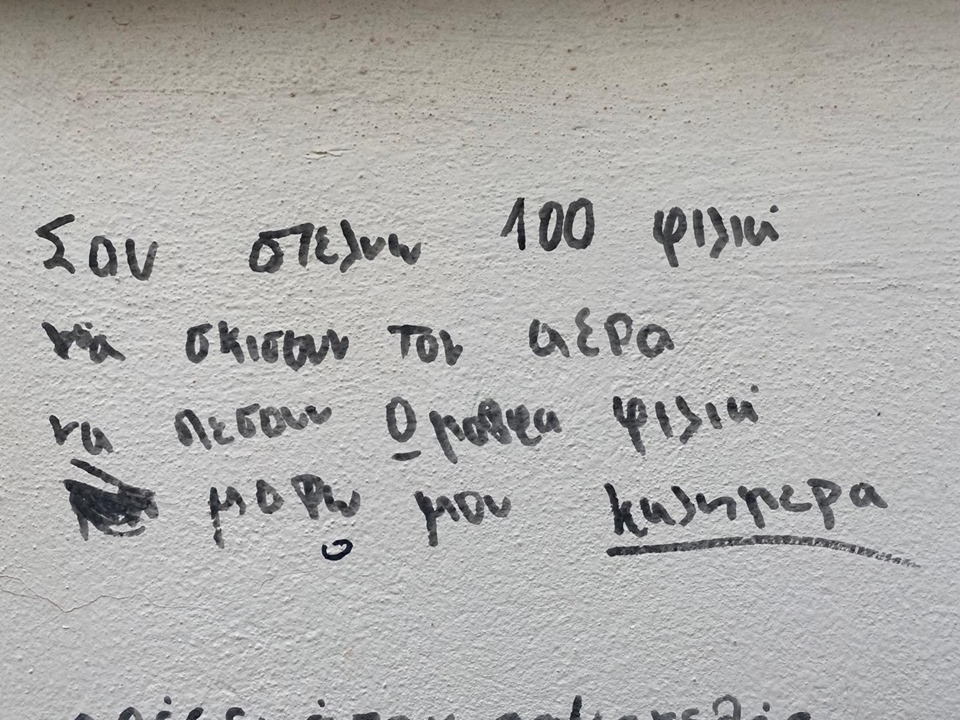 Σου στελνω 100 φιλιά
να σκισουν τον αερα
να πεσουν φιλιά
μωρο μου καλημερα